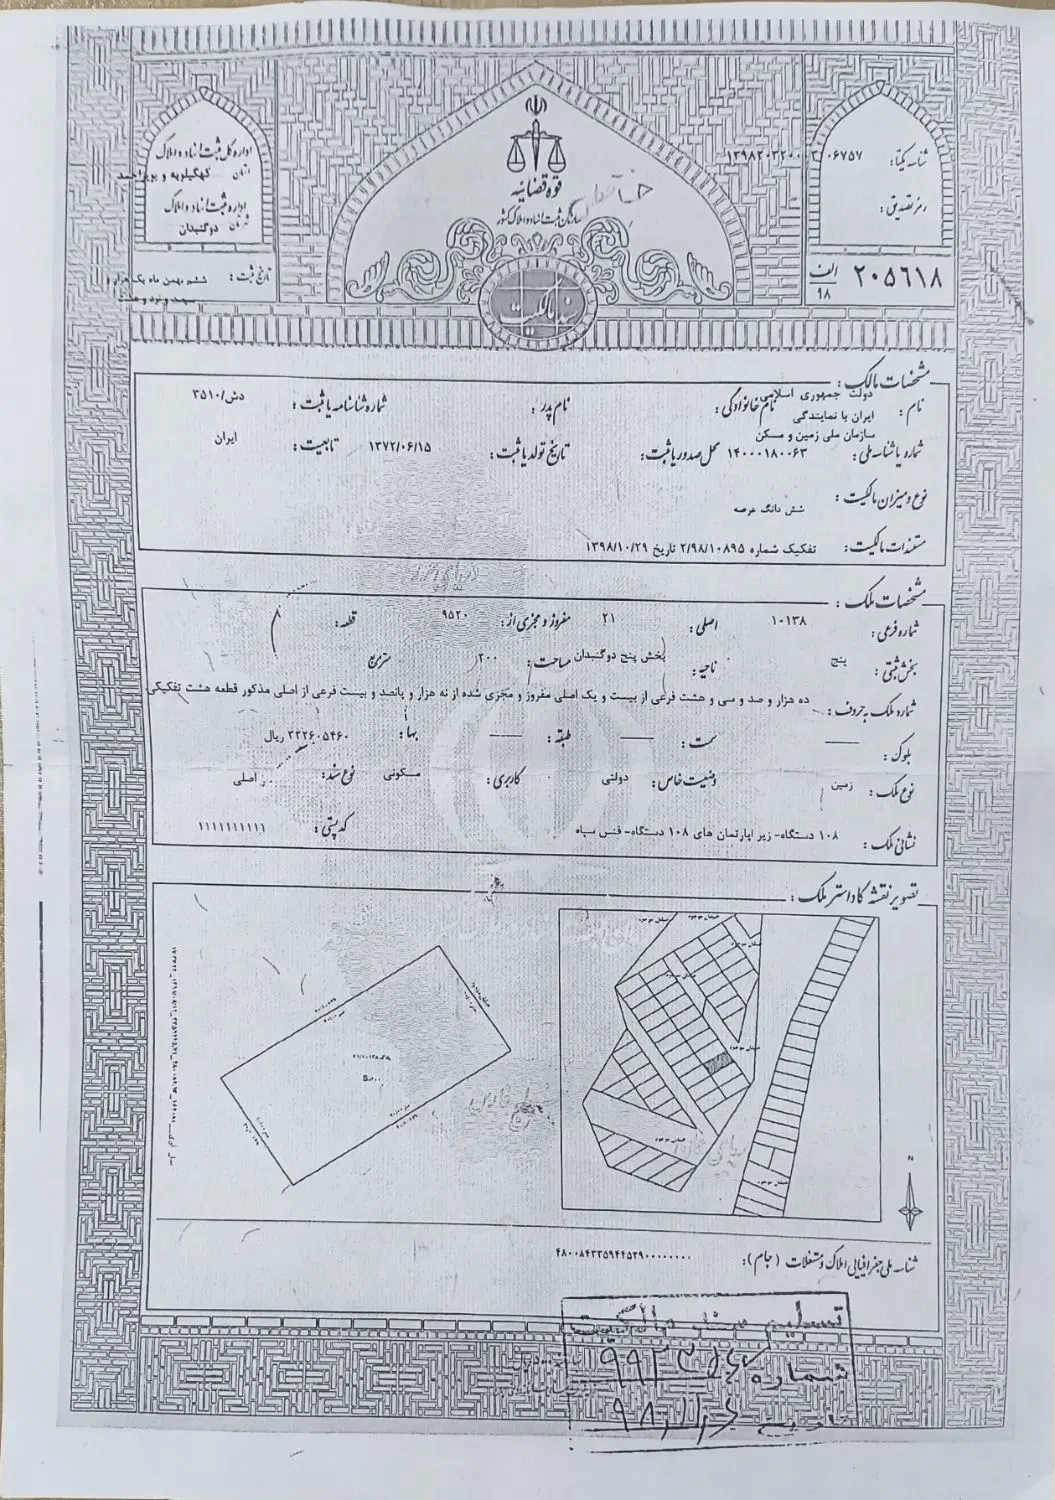 اداره کل ثبت اسناد و املاک
استان کهگیلویه و بویراحمد
اداره ثبت اسناد و املاک
شهرستان دوگنبدان
تاریخ ثبت : ششم بهمن ماه یک هزار و
سیصد و نود و هشت
قوه قضائیه
سازمان ثبت اسناد و املاک کشور
سند مالکیت
شناسه یکتا:
رمز تصدیق :
۲۰۵۶۱۸ الف
۹۸
مشخصات مالک :
نام : دولت جمهوری اسلامی
ایران با نمایندگی
سازمان ملی زمین و مسکن
نام خانوادگی : نام پدر : شماره شناسنامه یا ثبت : دش/۳۵۱۰
شماره یا شناسه ملی : ۱۴۰۰۰۱۸۰۰۶۳ محل صدور یا ثبت : تاریخ تولد یا ثبت : ۱۳۷۲/۰۶/۱۵ تابعیت : ایران
نوع و میزان مالکیت : شش دانگ عرصه
مستندات مالکیت : تفکیک شماره ۲/۹۸/۱۰۸۹۵ تاریخ ۱۳۹۸/۱۰/۲۹
مشخصات ملک :
شماره فرعی : ۱۰۱۳۸ اصلی : ۲۱ مفروز و مجزی از : ۹۵۲۰ قطعه :
بخش ثبتی : پنج ناحیه : بخش پنج دوگنبدان مساحت : ۲۰۰ مترمربع
شماره ملک به حروف : ده هزار و صد و سی و هشت فرعی از بیست و یک اصلی مفروز و مجزی شده از نه هزار و پانصد و بیست فرعی از اصلی مذکور قطعه هشت تفکیکی
بلوک : سمت : طبقه : بها : ۲۲۲۶۰۵۴۶۰ ریال
نوع ملک : زمین وضعیت خاص : دولتی کاربری : مسکونی نوع سند : اصلی
نشانی ملک : ۱۰۸ دستگاه- زیر اپارتمان های ۱۰۸ دستگاه- فنس سپاه کد پستی : ۱۱۱۱۱۱۱۱۱۱
تصویر نقشه کاداستر ملک :
خیابان موجود
خیابان موجود
خیابان موجود
خیابان موجود
خیابان موجود
خیابان موجود
N
شناسه ملی جغرافیایی املاک و مستغلات (جام):
تسلیم سند مالکیت
شماره
تاریخ